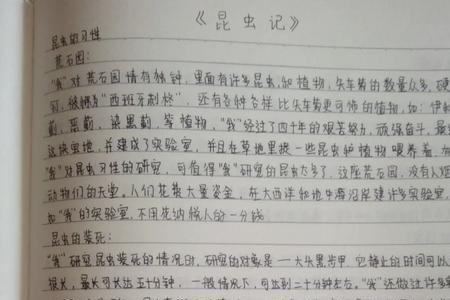 《昆虫记》
昆虫的习性
荒石园:
"我"对荒石园情有独钟,里面有许多昆虫,和植物,矢车菊的数量众多,硬
刺,被称为"西班牙刺柊",还有各种各样比矢车菊更可怖的植物,如:伊利
蓟,恶蓟,染黑蓟,等植物,"我"经过了四十年的艰苦努力,顽强奋斗,最
这块宝地,并建成了实验室,并且在草地里摸一些昆虫和植物喂养着,
"我"对昆虫习性的研究,可值得"我"研究的昆虫太多了,这座荒石园,没有人烟
动物们的天堂,人们花费大量资金,在大西洋和地中海沿岸建许多实验室,
如"我"的实验室,不用花纳税人的一分钱
昆虫的装死:
"我"研究昆虫装死的情况时,研究的对象是一大头黑步甲,它静止的时间可以
很长,最长可长达五十分钟,一般情况下,可达到二十分钟左右,"我"还做过许多